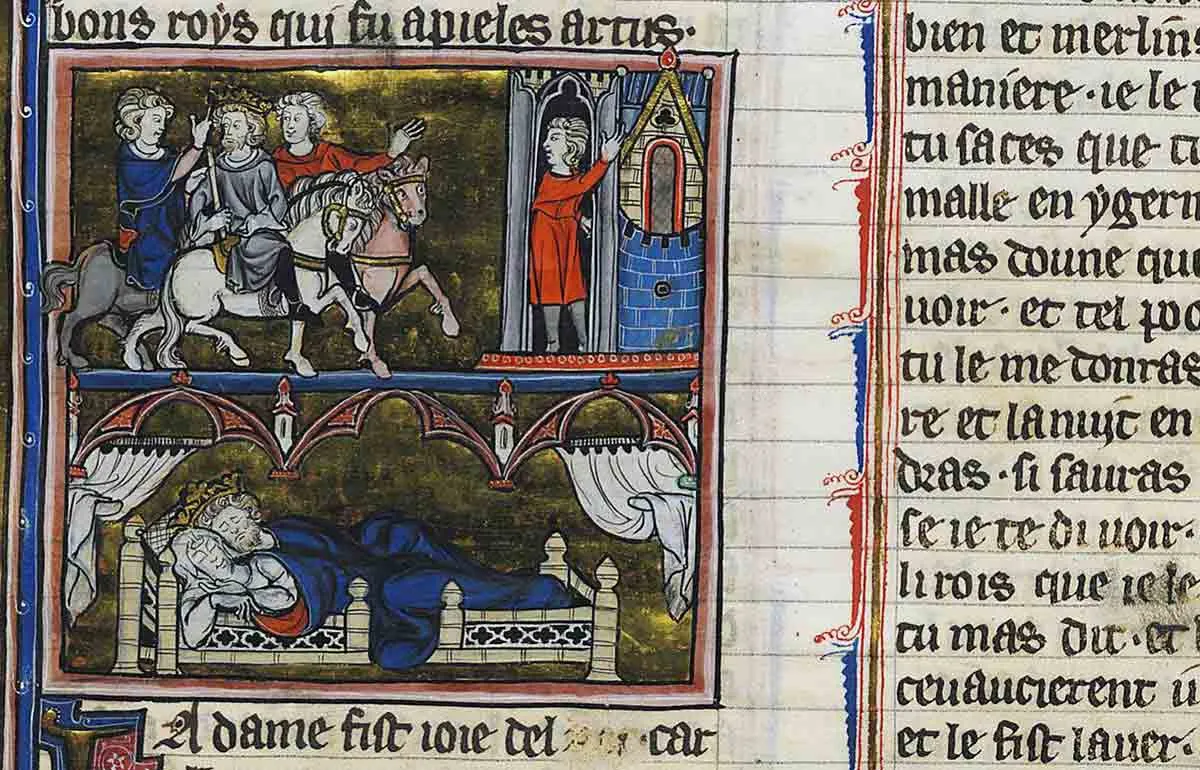 bons roys qui fu apieles artus.
A dame fist ioie del car
bien et merlins
maniere · ie le
tu saces que tu
malle en ygern
mas doune que
uoir · et tel poo
tu le me donras
re et la nuyt en
dras · si sauras
se ie te di uoir ·
li rois que ie le
tu mas dit · et
ceuaucierent
et le fist lauer ·